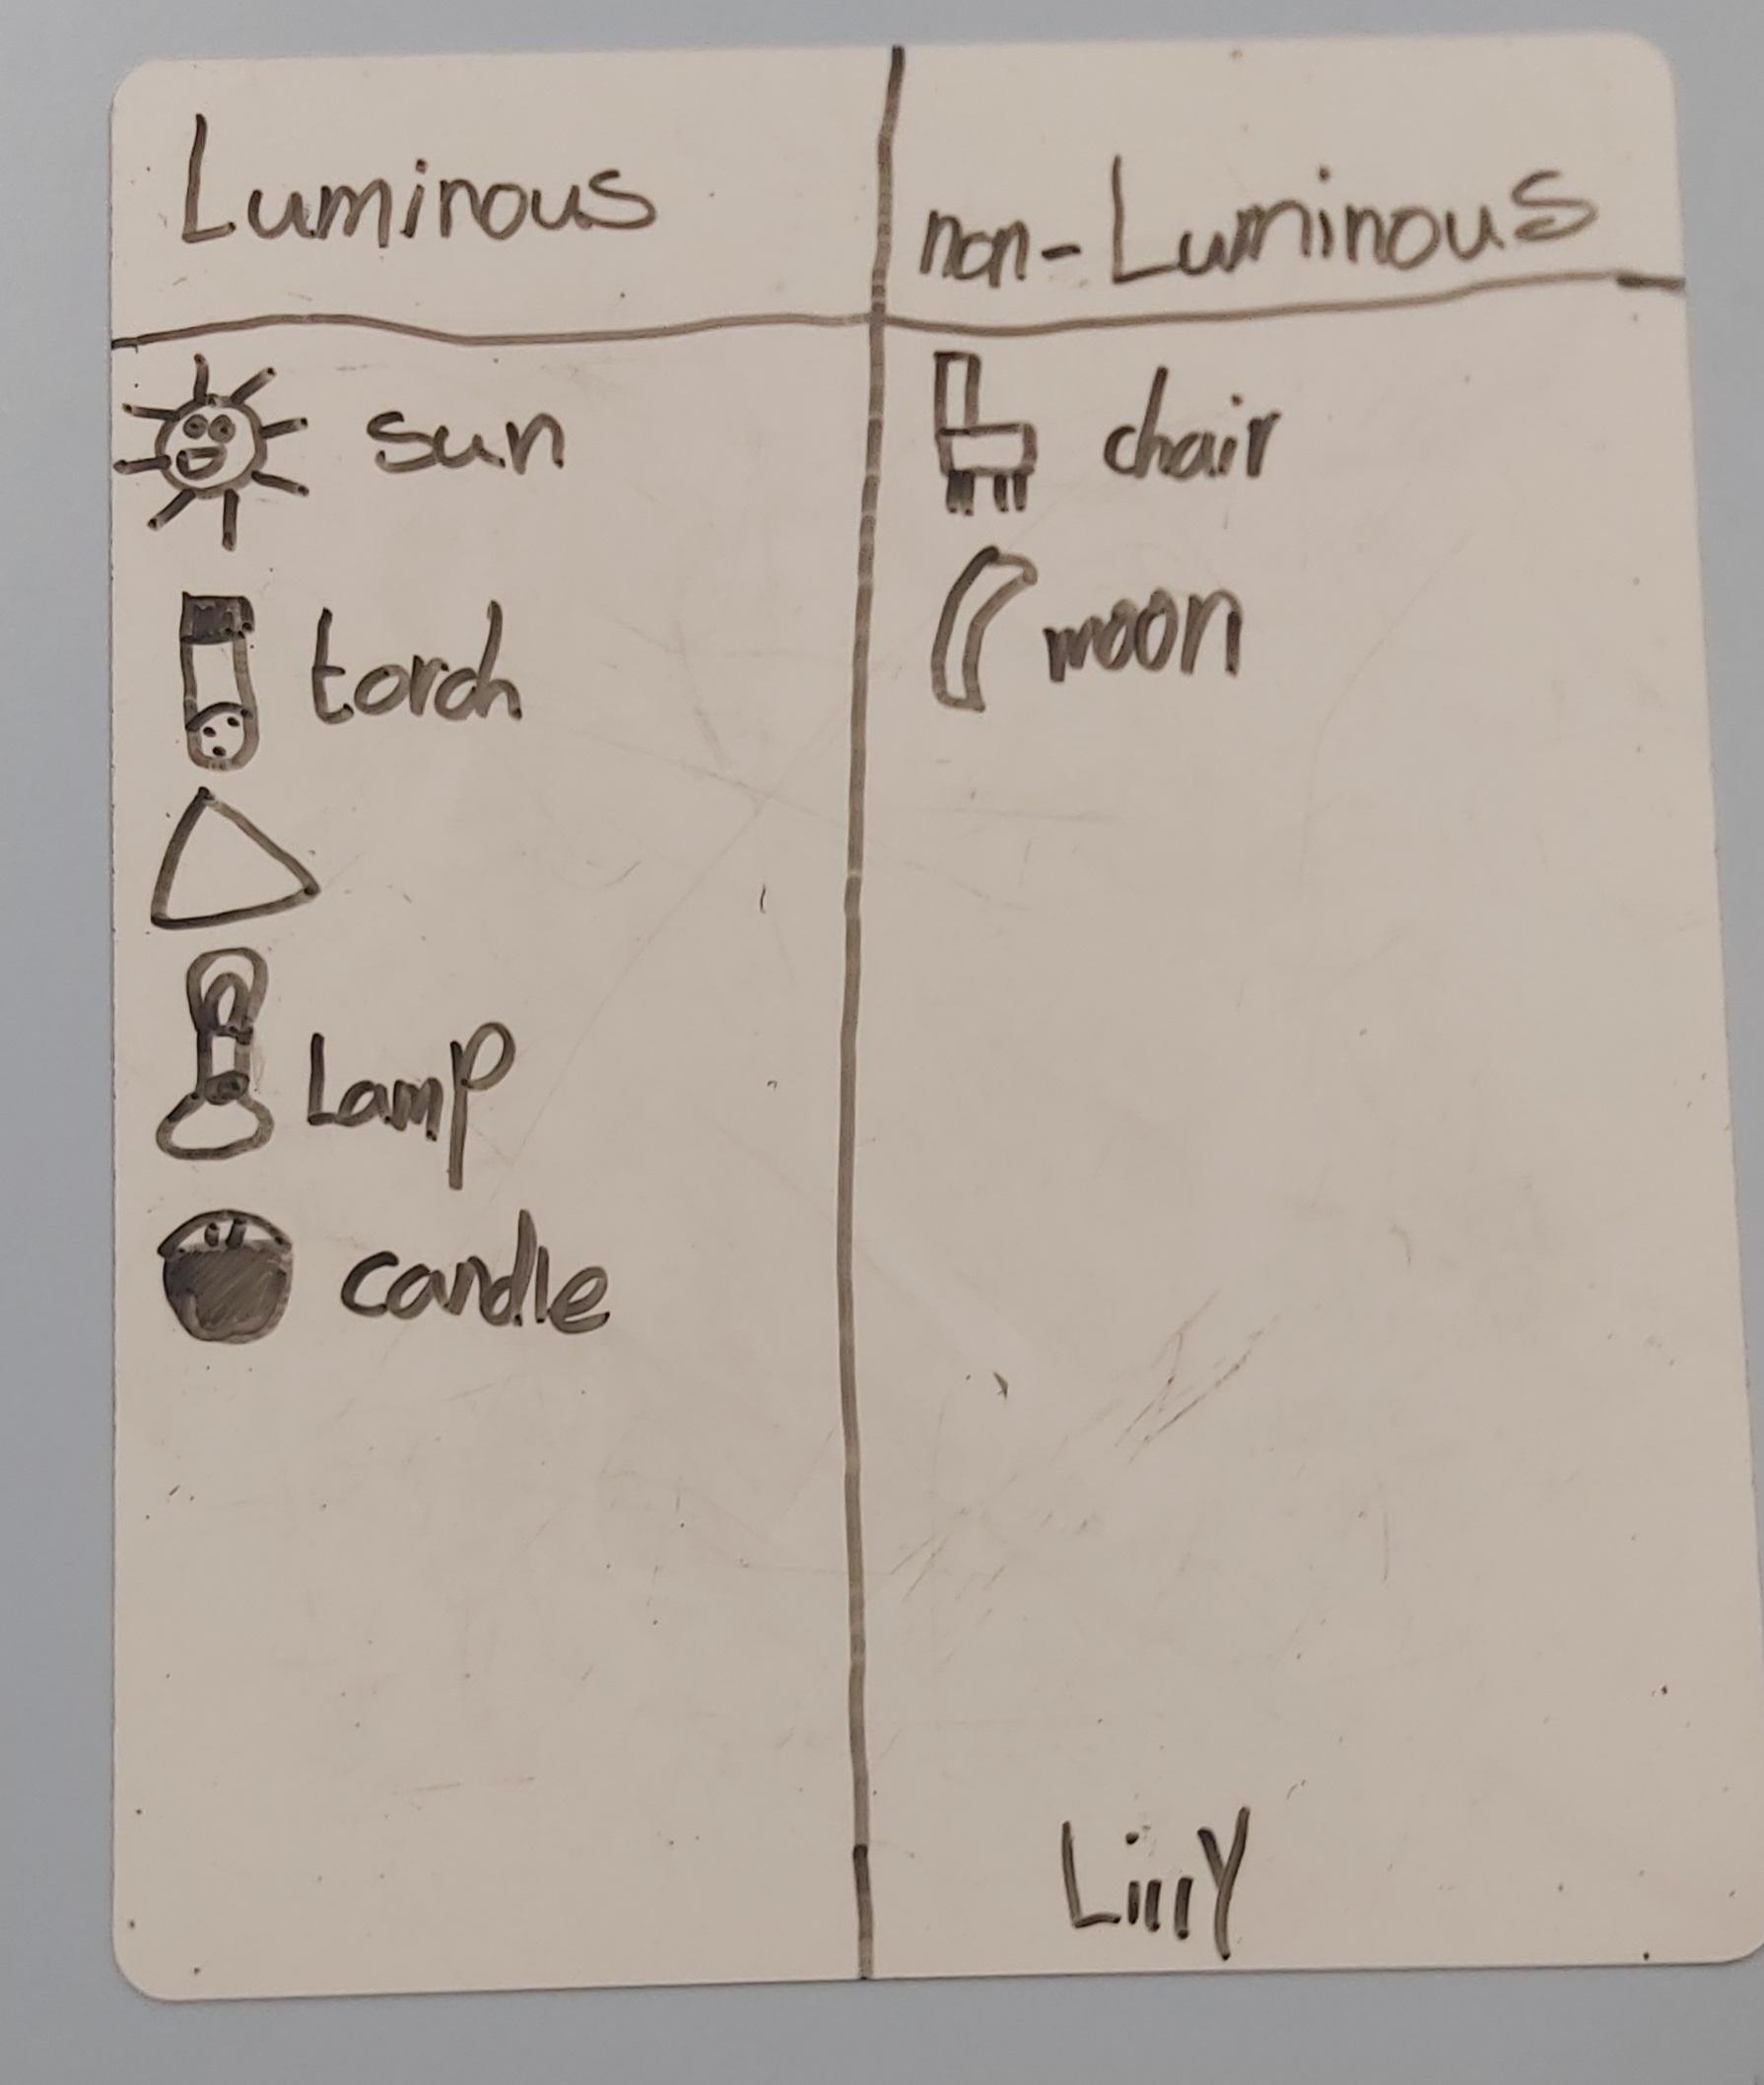 Luminous
non-Luminous
sun
torch
Lamp
candle
chair
moon
Lilly